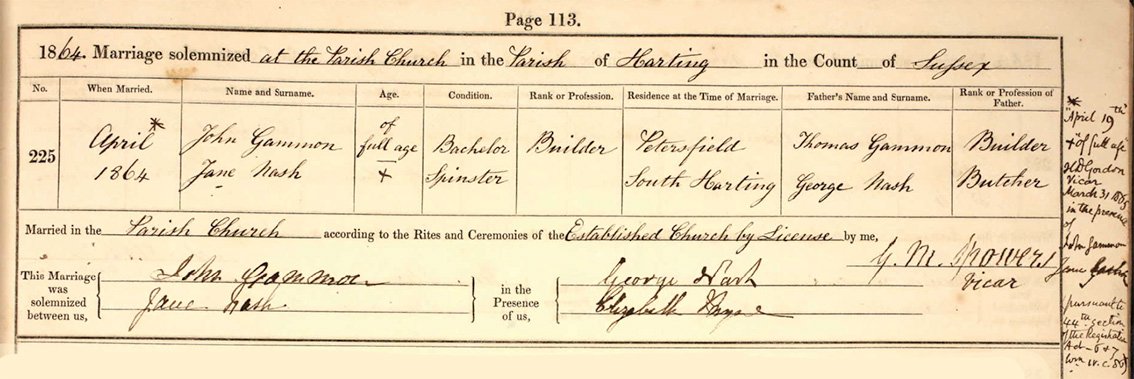 Page 113.
1864. Marriage solemnized at the Parish Church in the Parish of Harting in the Count of Sussex
No. When Married. Name and Surname. Age. Condition. Rank or Profession. Residence at the Time of Marriage. Father's Name and Surname. Rank or Profession of Father.
225
April *
1864
John Gammon of full age Bachelor Builder Petersfield Thomas Gammon Builder
Jane Nash + Spinster South Harting George Nash Butcher
Married in the Parish Church according to the Rites and Ceremonies of the Established Church by License by me,
G. M.
Vicar
This Marriage was solemnized between us,
John Gammon
Jane Nash
in the Presence of us,
George Nash
Elizabeth
*
"April 19th"
+ "of full age"
H D Gordon
Vicar
March 31 1865
in the presence
of
John Gammon
Jane
pursuant to
44th section
of the Registration
Act - 6 & 7
Wm IV. c. 86